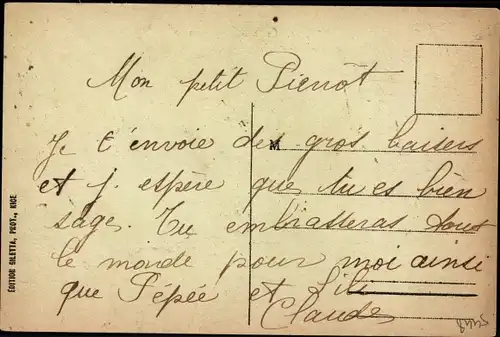 Mon petit Pierrot
Je t'envoie des gros baisers
et j. espère que tu es bien
sage. Tu embrasseras tout
le monde pour moi ainsi
que Pépée et Lili
Claude
M
ÉDITION GILETTA, PHOT., NICE